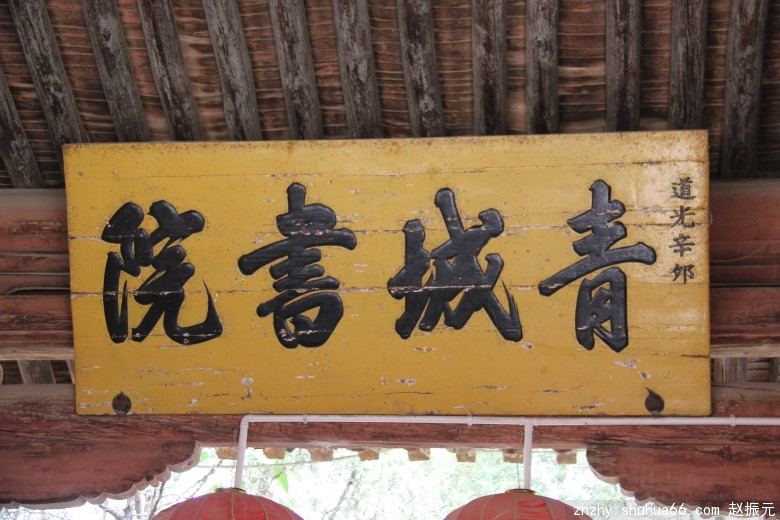 道光辛卯
青城書院
zhzhy.shuhua66.com 赵振元